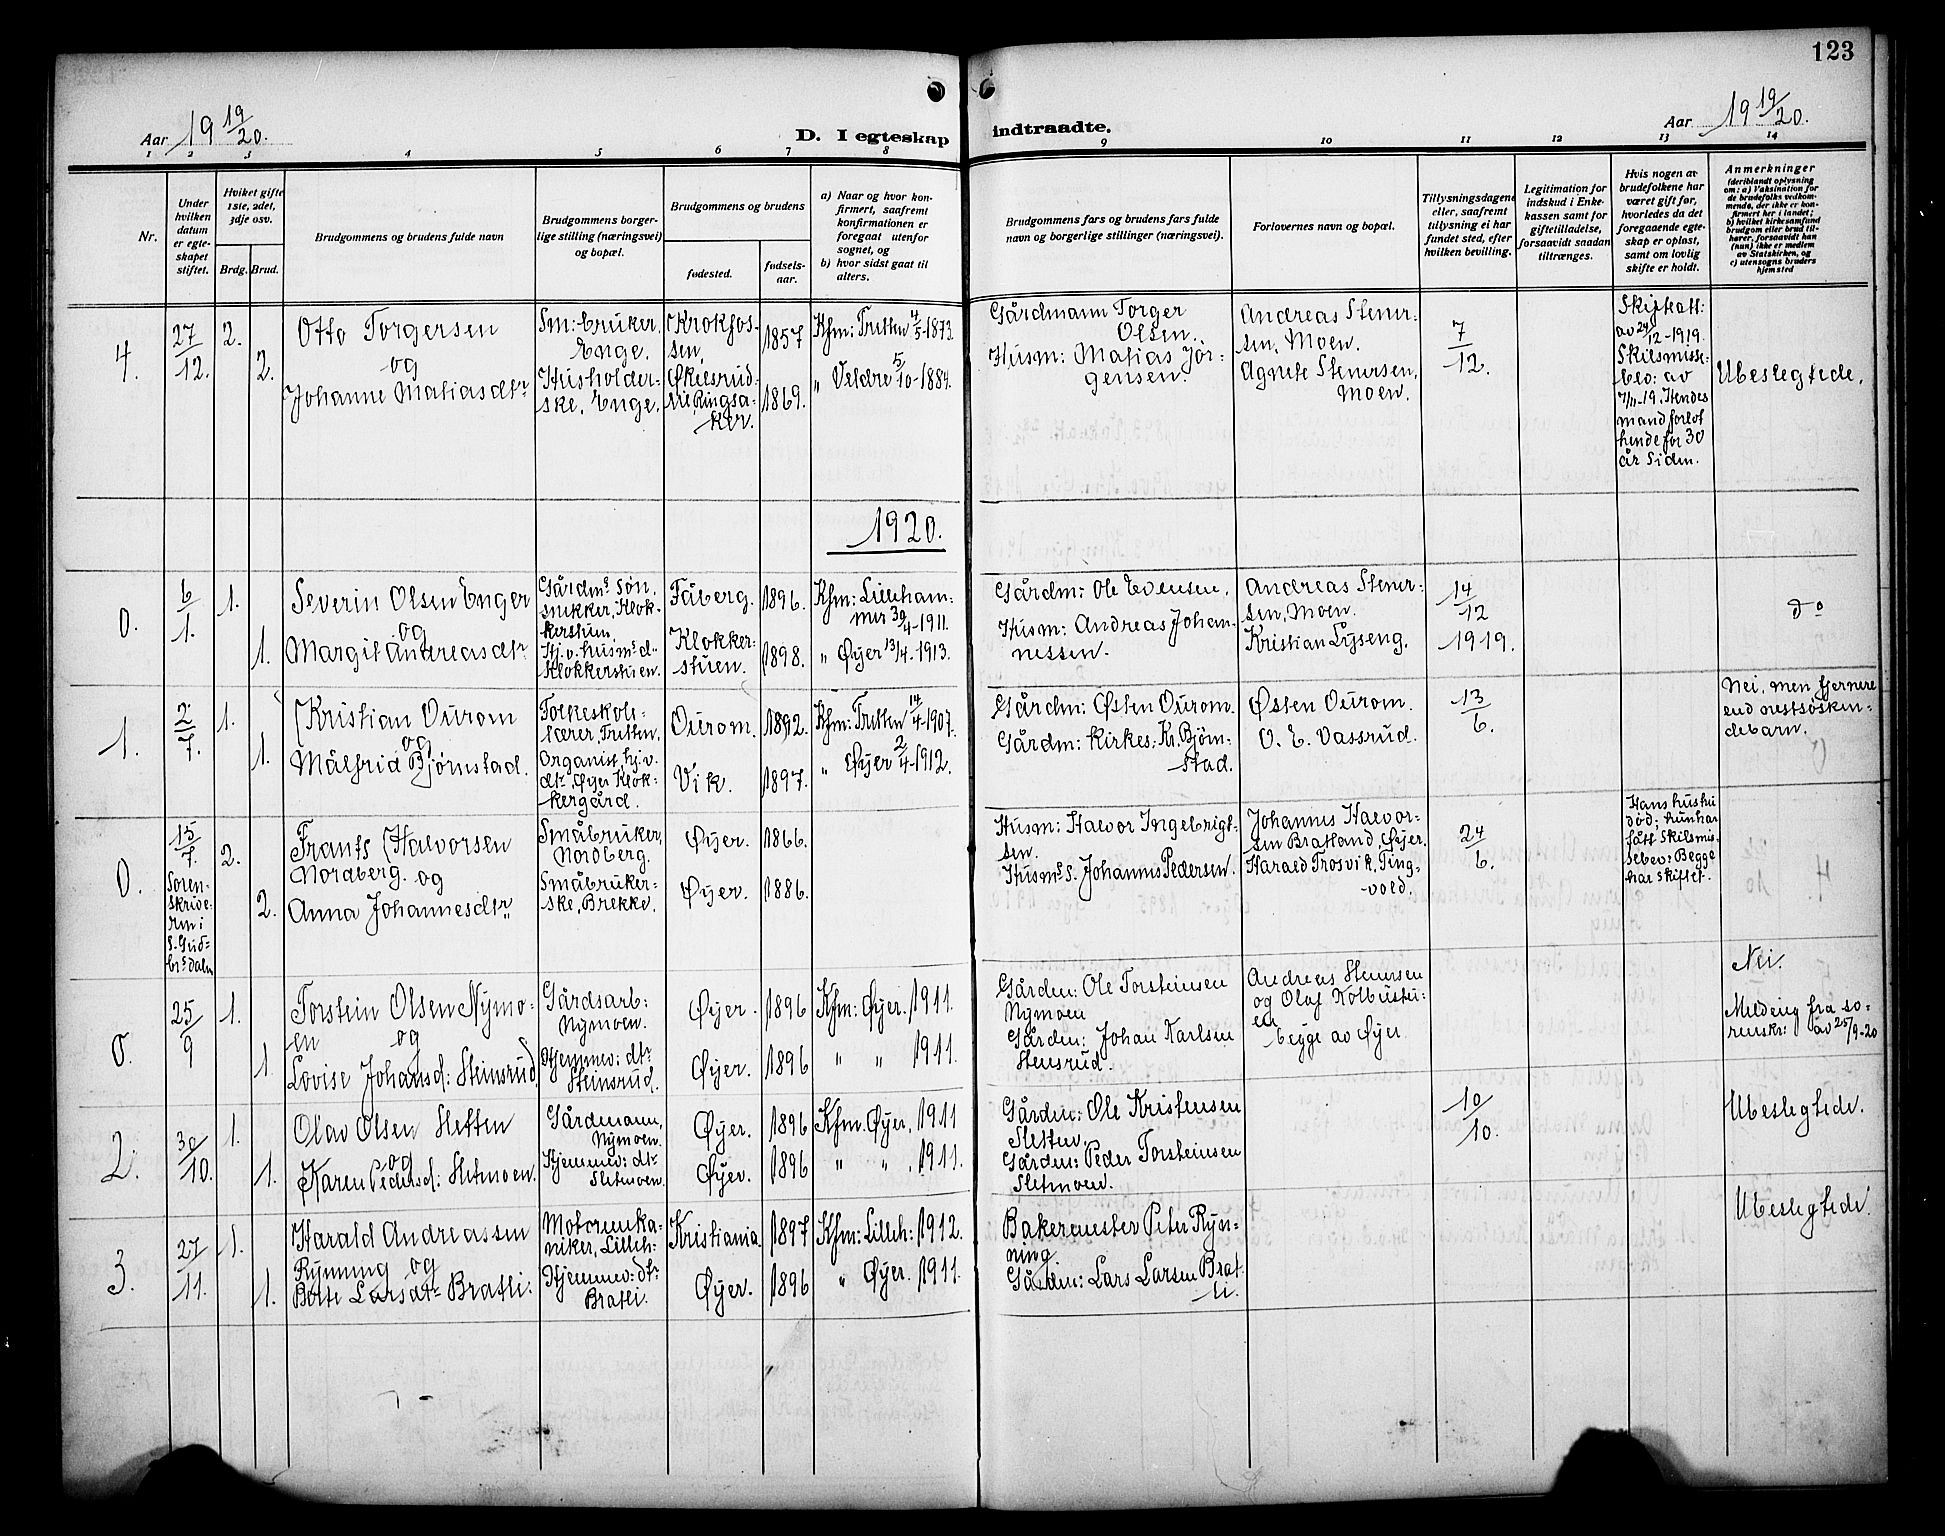 123
Aar 19 19/20.
D. I egteskap indtraadte.
Aar 19 19/20.
1 2 3 4 5 6 7 8 9 10 11 12 13 14
Nr.
Under
hvilken
datum
er egte-
skapet
stiftet.
Hvilket gifte
1ste, 2det,
3dje osv.
Brdg. Brud.
Brudgommens og brudens fulde navn
Brudgommens borger-
lige stilling (næringsvei)
og bopæl.
Brudgommens og brudens
fødested.
fødsels-
aar.
a) Naar og hvor kon-
firmert, saafremt
konfirmationen er
foregaat utenfor
sognet, og
b) hvor sidst gaat til
alters.
Brudgommens fars og brudens fars fulde
navn og borgerlige stillinger (næringsvei).
Forlovernes navn og bopæl.
Tillysningsdagene
eller, saafremt
tillysning ei har
fundet sted, efter
hvilken bevilling.
Legitimation for
indskud i Enke-
kassen samt for
giftetilladelse,
forsaavidt saadan
tiltrænges.
Hvis nogen av
brudefolkene har
været gift før,
hvorledes da det
foregaaende egte-
skap er opløst,
samt om lovlig
skifte er holdt.
Anmerkninger
(deriblandt oplysning
om: a) Vaksination for
de brudefolks vedkom-
mende, der ikke er kon-
firmert her i landet;
b) hvilket kirkesamfund
brudgom eller brud til-
hører, forsaavidt han
(hun) ikke er medlem
av Statskirken, og
c) utensogns bruders
hjemsted
4.
27/12.
2.
2.
Otto Torgersen
og
Johanne Matiasdtr
Sm: bruker,
Enge.
Husholder-
ske, Enge.
Krokfos-
sen,
Økilsrud-
Ringsa-
ker.
1857
1869.
Kfm: Tretten 4/5-1873.
" Veldre 5/10-1884.
Gårdmann Torger
Olsen.
Husm: Matias Jør-
gensen.
Andreas Stener-
sen, Moen.
Agnete Stenersen,
Moen.
7/12.
Skifteatt:
av 24/12-1919.
Skilsmisse-
bev: av
7/11-19. Hendes
mand forlot
hende for 30
år siden.
Ubeslegtede.
1920.
0.
6/1.
1.
1.
Severin Olsen Enger
og
Margit Andreasdtr
Gårdms søn,
snekker, Klok-
kerstuen.
Hj. v. husms d.
Klokkerstuen.
Fåberg.
Klokker-
stuen.
1896.
1898.
Kfm: Lilleham-
mer 30/4-1911.
" Øyer 13/4-1913.
Gårdm: Ole Evensen.
Husm: Andreas Johan-
nessen.
Andreas Stener-
sen, Moen.
Kristian Lyseng.
14/12
1919.
do
1.
2/7.
1.
1.
Kristian Ourom
og
Målfrid Bjørnstad.
Folkeskole-
lærer, Tretten.
Organist, hj. v.
dtr, Øyer Klok-
kergård.
Ourom.
Vik.
1892.
1897.
Kfm: Tretten 14/4-1907.
" Øyer 2/4-1912.
Gårdm: Østen Ourom.
Gårdm: kirkes: Kr. Bjørn-
stad.
Østen Ourom.
O. E. Vassrud.
13/6.
Nei, men fjernere
end nestsøsken-
debarn.
0.
15/7.
Soren-
skrive-
ren i
S. Gud-
brsdalen
2.
2.
Frants Halvorsen
Nordberg. og
Anna Johannesdtr
Småbruker,
Nordberg.
Småbruker-
ske, Brekke.
Øyer.
Øyer.
1866.
1886.
Husm: Halvor Ingebrigt-
sen.
Husms. Johannes Pedersen.
Johannes Halvor-
sen Bratland, Øyer.
Harald Trosvik, Ting-
vold.
24/6.
Hans hustru
død: hun har
fått skilsmis-
sebev: Begge
har skiftet.
0.
25/9
1.
1.
Torstein Olsen Nymo-
en og
Lovise Johansd: Steinsrud
Gårdsarb:
Nymoen.
Hjemmev: dtr
Steinsrud.
Øyer.
Øyer.
1896
1896
Kfm: Øyer. 1911.
" " 1911.
Gården: Ole Torsteinsen
Nymoen
Gården: Johan Karlsen
Stensrud.
Andreas Stenersen
og Olaf Kolbustu-
en
begge av Øyer.
Nei.
Melding fra so-
renskr: av 25/9-20
2.
30/10.
1.
1.
Olav Olsen Sletten
og
Karen Pedersd: Sletmoen.
Gårdmann,
Nymoen.
Hjemmev: dtr
Sletmoen.
Øyer.
Øyer.
1896
1896
Kfm. Øyer, 1911
" " , 1911.
Gården: Ole Kristensen
Sletten.
Gården: Peder Torsteinsen
Sletmoen.
10/10.
Ubeslegtede.
3.
27/11.
1.
1.
Harald Andreassen
Rynning og
Bolte Larsdtr Bratli.
Motormeka-
niker, Lilleh:
Hjemmev: dtr
Bratli.
Kristiania.
Øyer.
1897
1896
Kfm: Lilleh: 1912.
" Øyer. 1911.
Bakermester Peter Ryn-
ning
Gården: Lars Larsen Brat-
li.
Ubeslegtede.